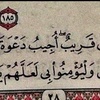 ١٨٥
قَرِيبٌ ۖ أُجِيبُ دَعْوَةَ
وَلْيُؤْمِنُوا۟ بِى لَعَلَّهُمْ
٢٨